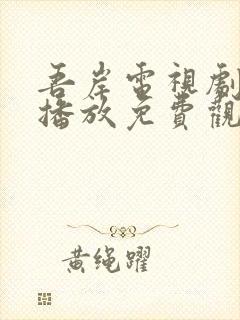 吾岸電視劇
播放免費觀
黄绳躍